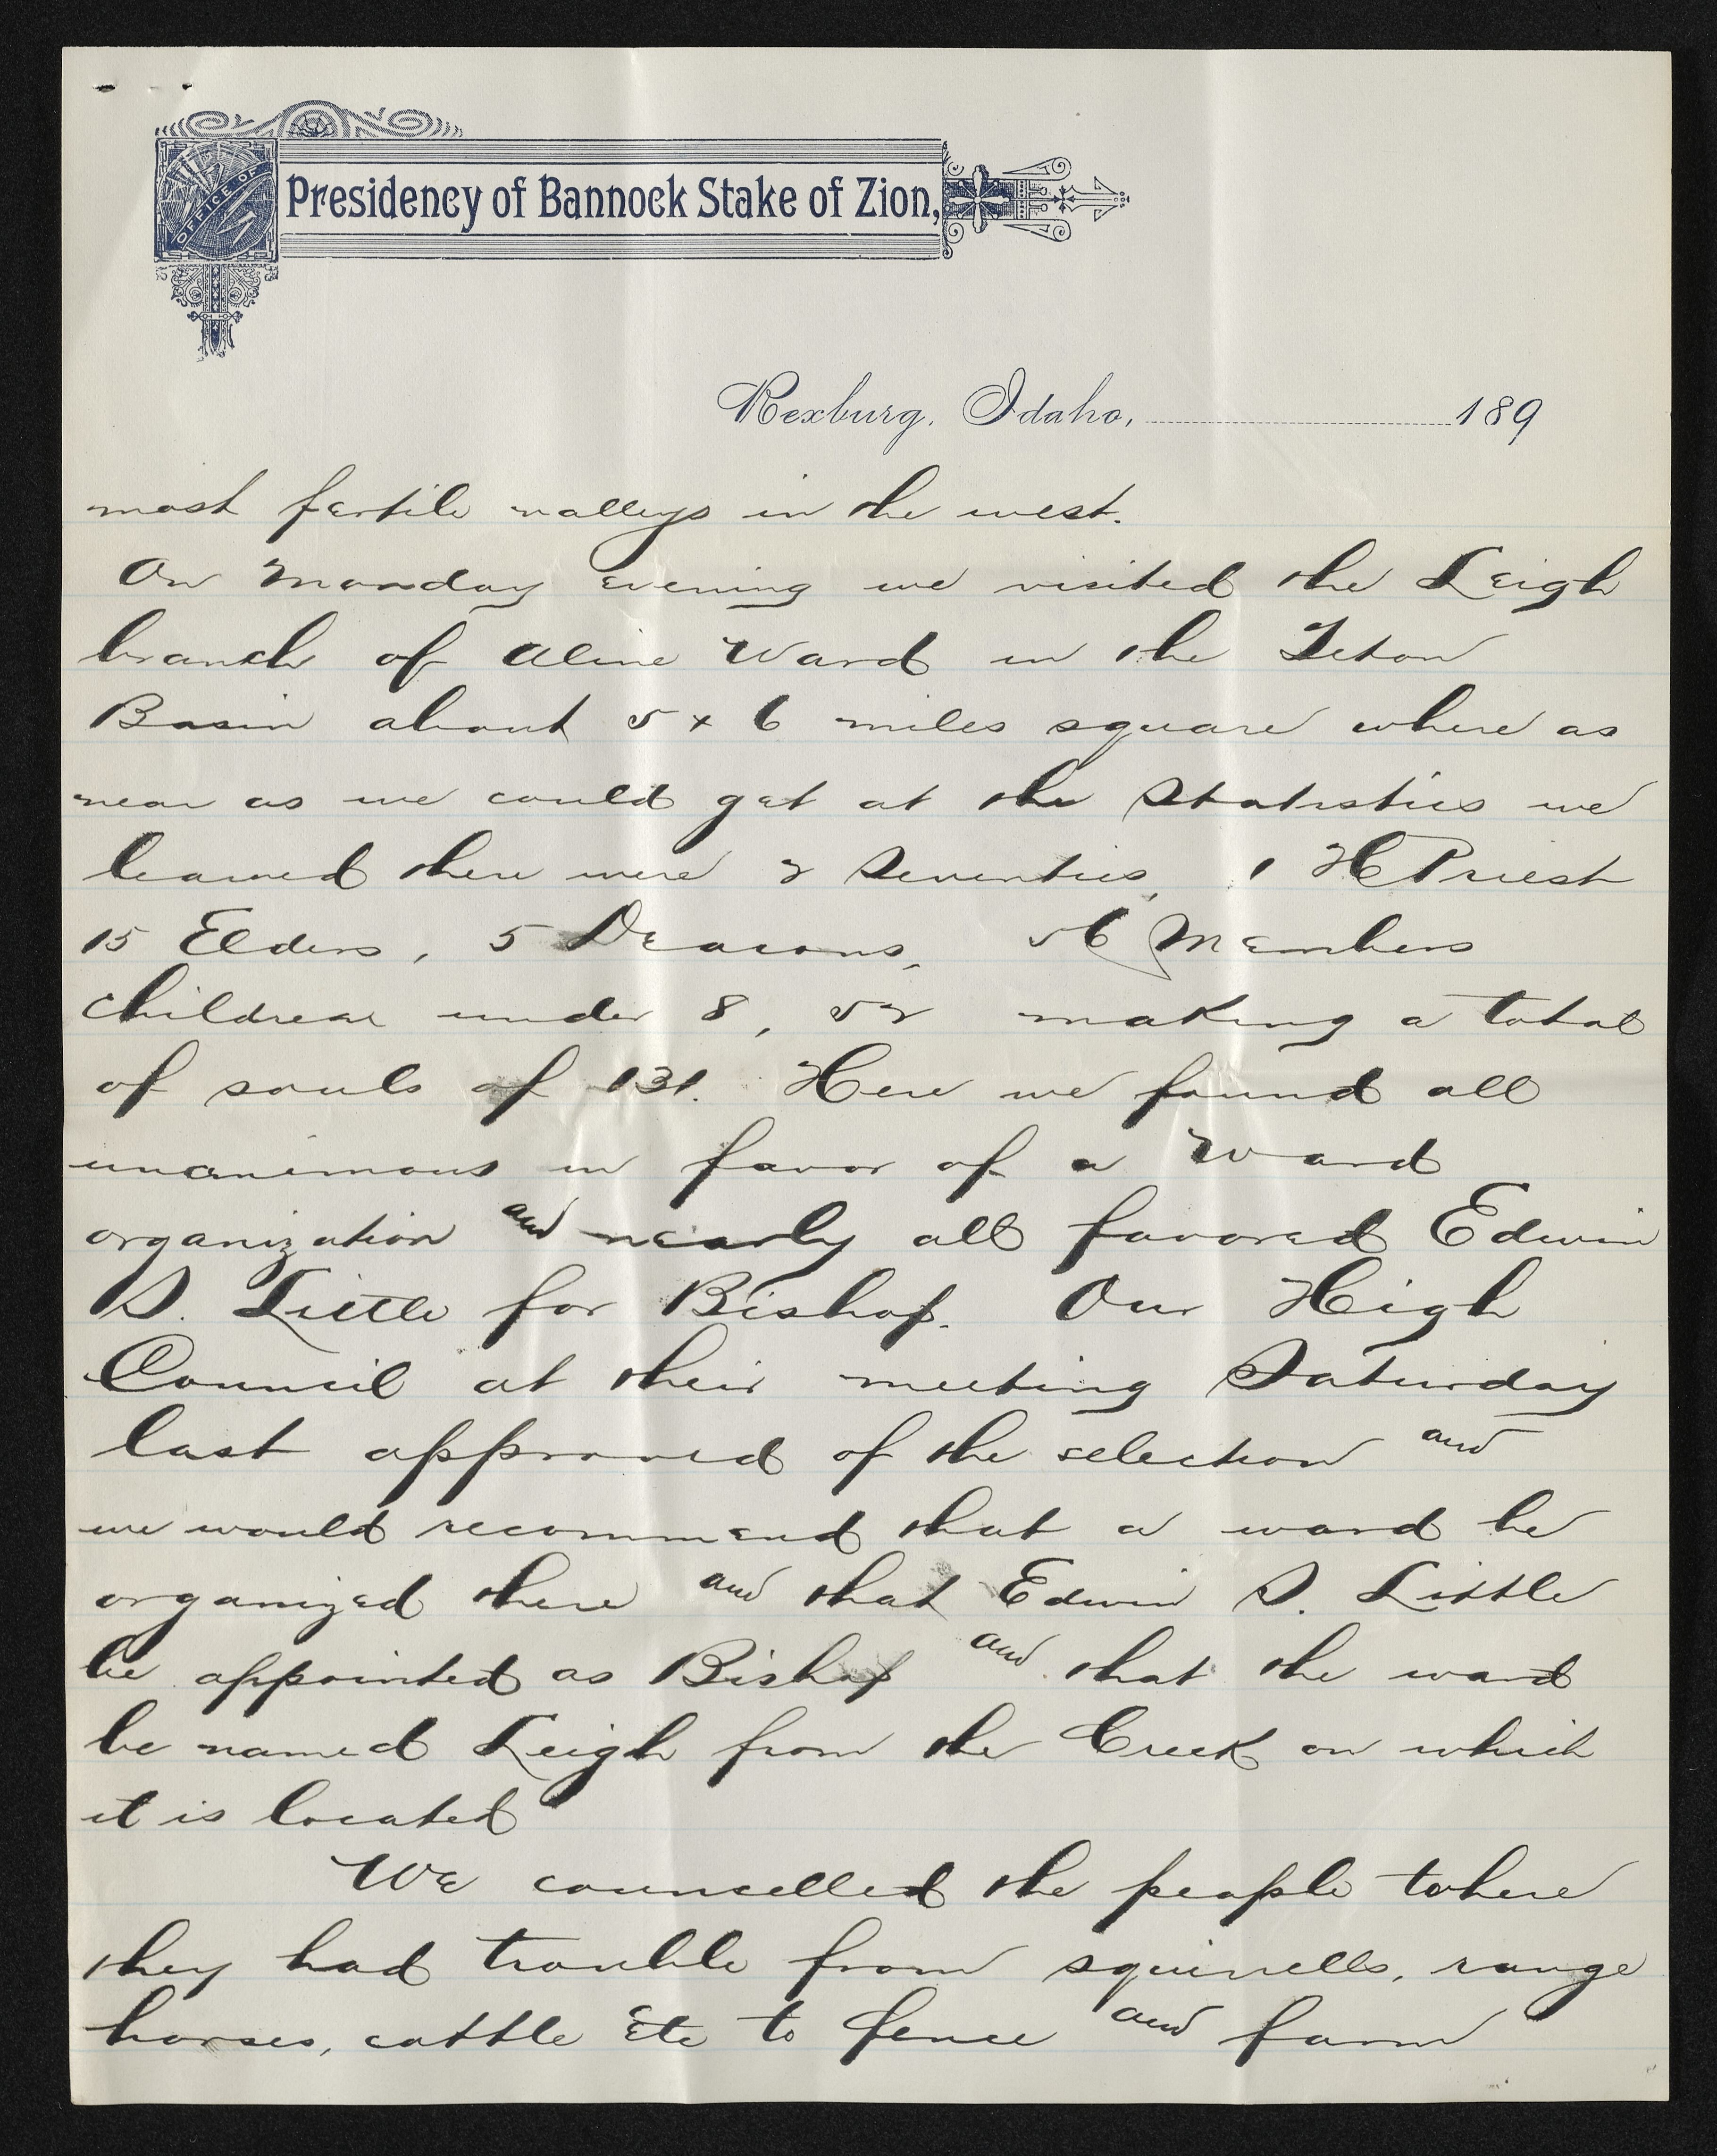 OFFICE OF
Presidency of Bannock Stake of Zion,
Rexburg, Idaho, 189
most fertile valleys in the west.
On Monday evening we visited the Leigh
branch of Aline Ward in the Teton
Basin about 5 x 6 miles square where as
near as we could get at the Statistics we
learned there were 2 Seventies, 1 H Priest
15 Elders, 5 Deacons, 56 Members
children under 8, 52 making a total
of souls of 131. Here we found all
unanimous in favor of a Ward
organization and nearly all favored Edwin
S. Little for Bishop. Our High
Council at their meeting Saturday
last approved of the selection and
we would recommend that a ward be
organized there and that Edwin S. Little
be appointed as Bishop and that the ward
be named Leigh from the Creek on which
it is located
We councelled the people where
they had trouble from squirrells, range
horses, cattle Etc to fence and farm